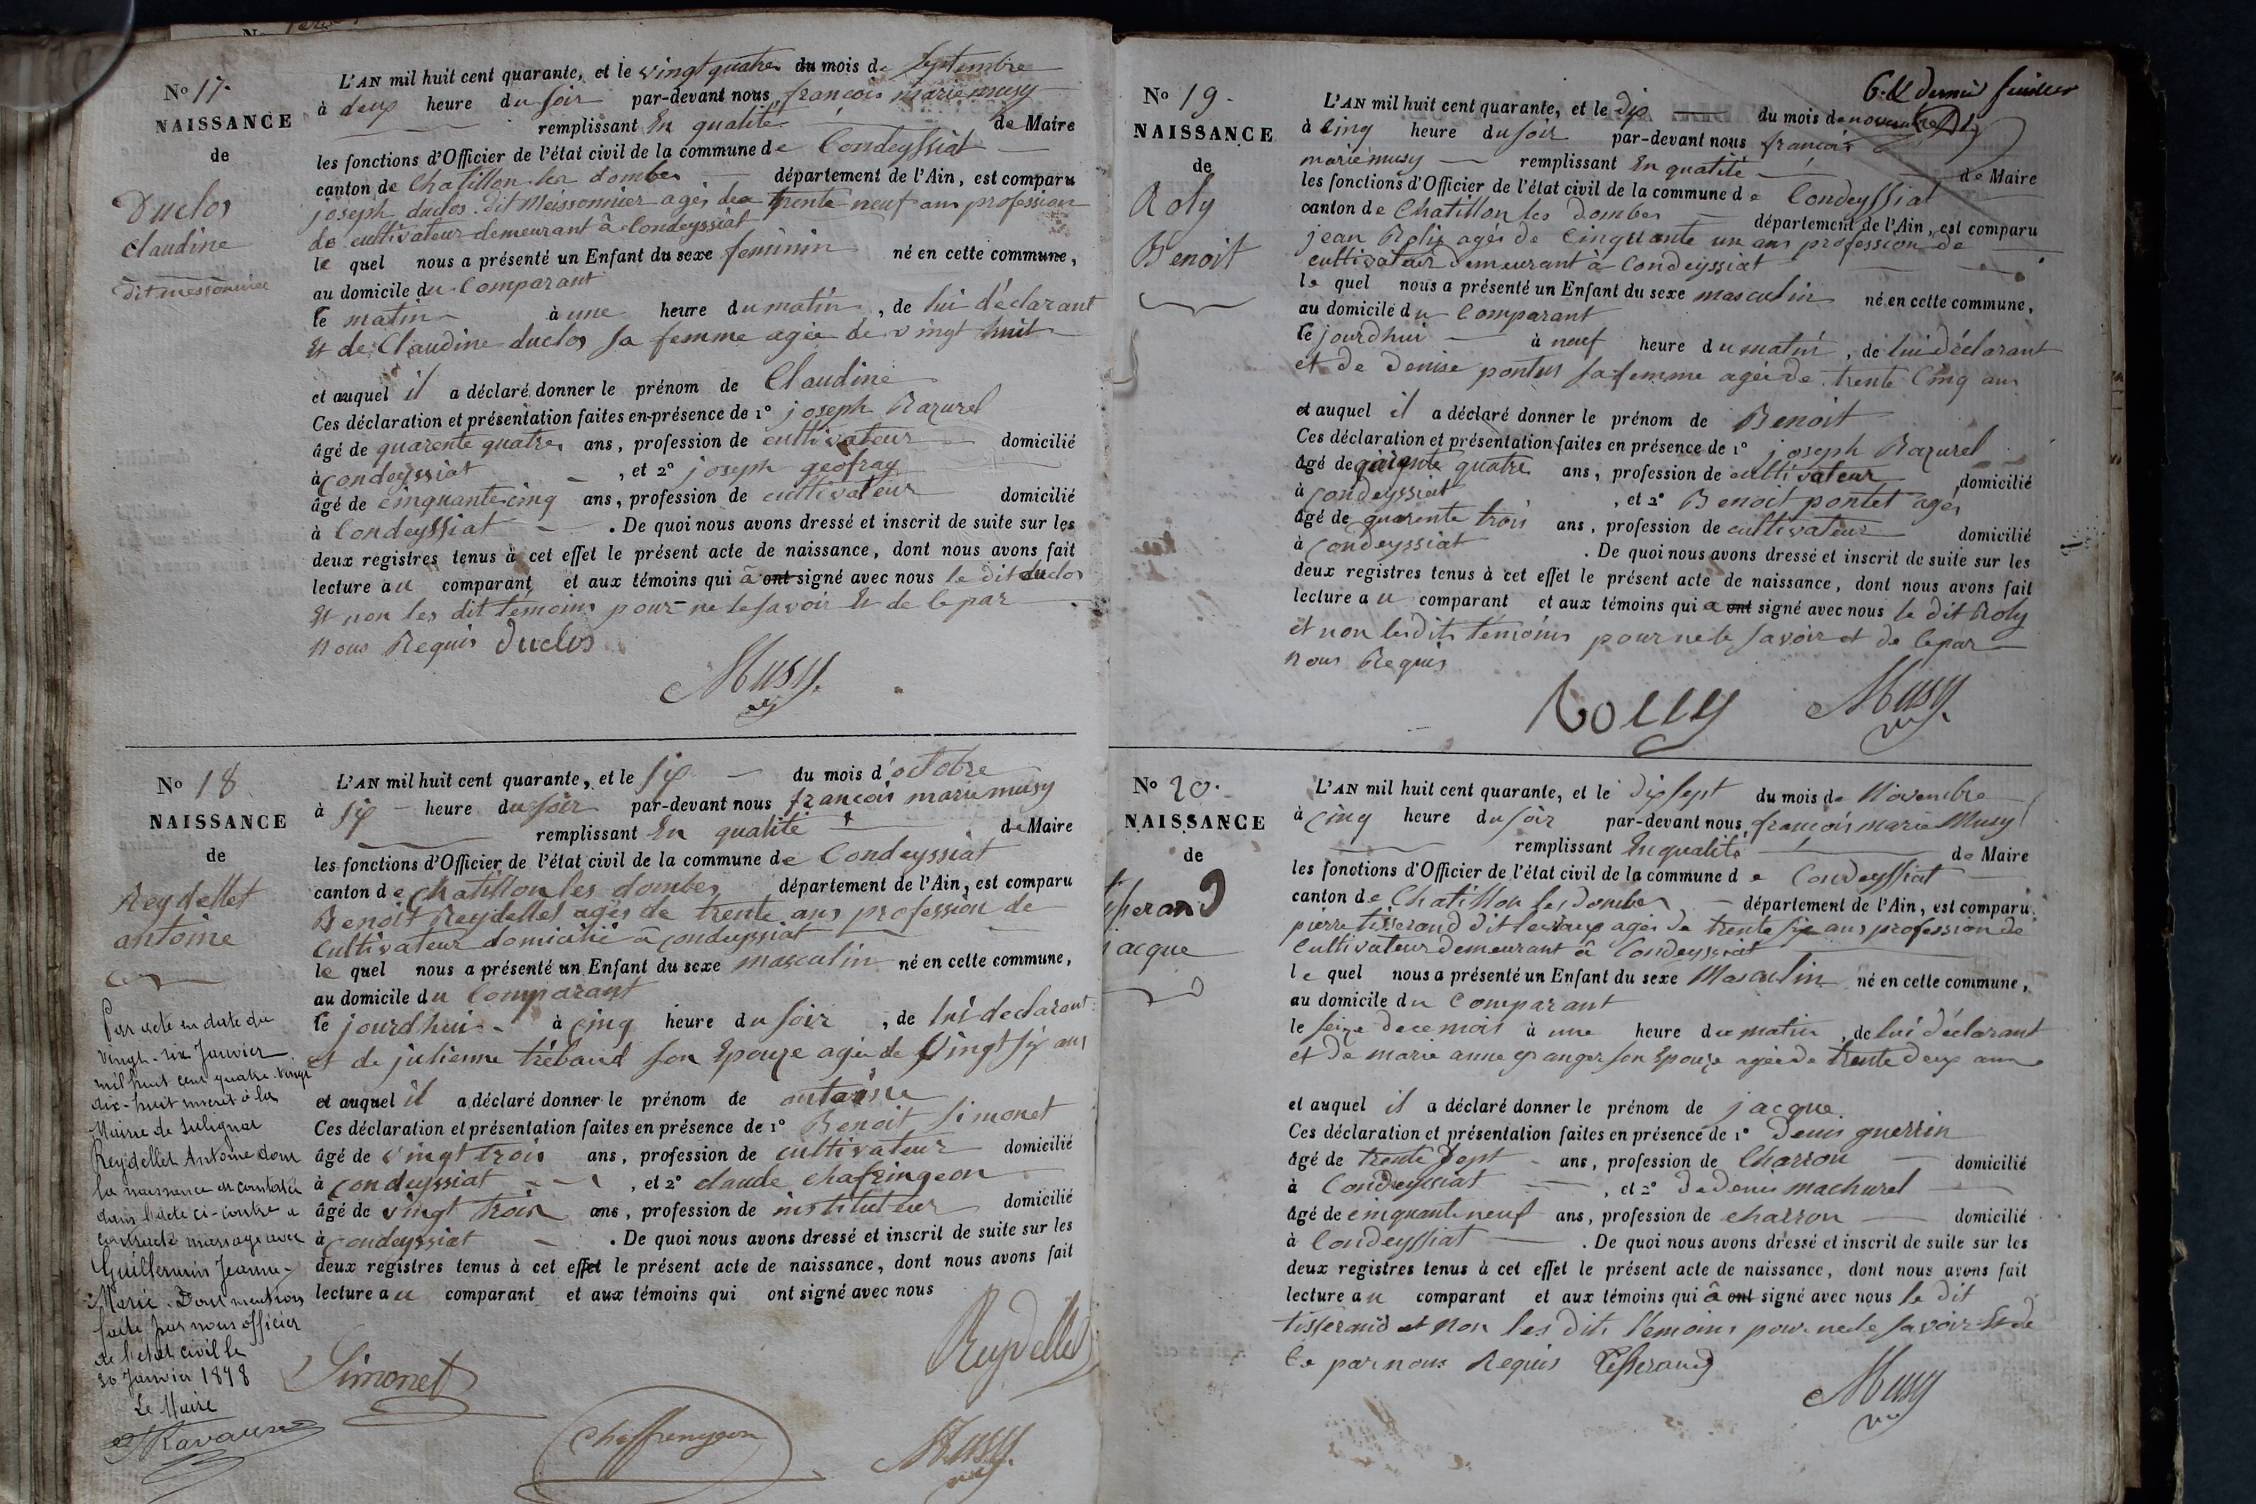 No 17.
NAISSANCE
de
Duclos
Claudine
dit messonnier
L'AN mil huit cent quarante, et le vingt quatre du mois de Septembre
à deux heure du soir par-devant nous françois marie musy
remplissant En qualité de Maire
les fonctions d'Officier de l'état civil de la commune de Condeyssiat
canton de Chatillon les dombes département de l'Ain, est comparu
joseph duclos dit Meissonnier agés de trente neuf ans profession
de cultivateur demeurant à Condeyssiat
le quel nous a présenté un Enfant du sexe feminin né en cette commune,
au domicile du Comparant
le matin à une heure du matin, de lui déclarant
Et de Claudine duclos sa femme agée de vingt huit
et auquel il a déclaré donner le prénom de Claudine
Ces déclaration et présentation faites en présence de 1° joseph Razurel
âgé de quarente quatre ans, profession de cultivateur domicilié
à condeyssiat, et 2° joseph geofray
âgé de cinquante cinq ans, profession de cultivateur domicilié
à Condeyssiat. De quoi nous avons dressé et inscrit de suite sur les
deux registres tenus à cet effet le présent acte de naissance, dont nous avons fait
lecture au comparant et aux témoins qui à ont signé avec nous le dit duclos
Et non les dit témoins pour ne le savoir Et de ce par
nous Requis Duclos
Musy
No 18
NAISSANCE
de
Reydellet
antoine
Par acte en date du
vingt-six Janvier
mil huit cent quatre-vingt
dix-huit inscrit à la
Mairie de Sulignat
Reydellet Antoine dont
la naissance est constatée
dans l'acte ci-contre a
contracté mariage avec
Guillermin Jeanne-
Marie. Dont mention
faite par nous officier
de l'état civil le
30 Janvier 1898
Le Maire
Ravaux
L'AN mil huit cent quarante, et le six du mois d'octobre
à six heure du soir par-devant nous françois marie musy
remplissant En qualité de Maire
les fonctions d'Officier de l'état civil de la commune de Condeyssiat
canton de Chatillon les dombes département de l'Ain, est comparu
Benoit Reydellet agés de trente ans profession de
Cultivateur domicilié à condeyssiat
le quel nous a présenté un Enfant du sexe masculin né en cette commune,
au domicile du Comparant
le jourdhui à cinq heure du soir, de lui declarant
et de julienne trébaud son Epouze agée de Vingt six ans
et auquel il a déclaré donner le prénom de antoine
Ces déclaration et présentation faites en présence de 1° Benoit Simonet
âgé de vingt trois ans, profession de cultivateur domicilié
à condeyssiat, et 2° claude chafringeon
âgé de vingt trois ans, profession de instituteur domicilié
à condeyssiat. De quoi nous avons dressé et inscrit de suite sur les
deux registres tenus à cet effet le présent acte de naissance, dont nous avons fait
lecture au comparant et aux témoins qui ont signé avec nous
Reydellet
Simonet
Chaffrenygeon
Musy
6.e & dernier feuillet
No 19.
NAISSANCE
de
Roly
Benoit
L'AN mil huit cent quarante, et le dix du mois de novembre
à cinq heure du soir par-devant nous françois
marie musy remplissant En qualité de Maire
les fonctions d'Officier de l'état civil de la commune de Condeyssiat
canton de Chatillon les Dombes département de l'Ain, est comparu
jean Roly agés de Cinquante un ans profession de
cultivateur demeurant à Condeyssiat
le quel nous a présenté un Enfant du sexe masculin né en cette commune,
au domicile du Comparant
le jourdhui à neuf heure du matin, de lui déclarant
et de Denise pontus sa femme agée de trente Cinq ans
et auquel il a déclaré donner le prénom de Benoit
Ces déclaration et présentation faites en présence de 1° joseph Razurel
âgé de quarente quatre ans, profession de cultivateur domicilié
à Condeyssiat, et 2° Benoit pontet agés
âgé de quarente trois ans, profession de cultivateur domicilié
à Condeyssiat. De quoi nous avons dressé et inscrit de suite sur les
deux registres tenus à cet effet le présent acte de naissance, dont nous avons fait
lecture au comparant et aux témoins qui a ont signé avec nous le dit Roly
et non lesdits témoins pour ne le savoir et de ce par
nous Requis
Rolly Musy
No 20.
NAISSANCE
de
tisserand
jacque
L'AN mil huit cent quarante, et le dix sept du mois de Novembre
à cinq heure du soir par-devant nous françois marie Musy
remplissant En qualité de Maire
les fonctions d'Officier de l'état civil de la commune de Condeyssiat
canton de Chatillon les Dombes département de l'Ain, est comparu
pierre tisserand dit agés de trente six ans profession de
Cultivateur demeurant à Condeyssiat
le quel nous a présenté un Enfant du sexe Masculin né en cette commune,
au domicile du Comparant
le seize de ce mois à une heure du matin, de lui déclarant
et de marie anne granger son Epouze agée de trente deux ans
et auquel il a déclaré donner le prénom de jacque
Ces déclaration et présentation faites en présence de 1° Denis guerrin
âgé de trente sept ans, profession de Charron domicilié
à Condeyssiat, et 2° de denis machurel
âgé de cinquante neuf ans, profession de charron domicilié
à Condeyssiat. De quoi nous avons dressé et inscrit de suite sur les
deux registres tenus à cet effet le présent acte de naissance, dont nous avons fait
lecture au comparant et aux témoins qui à ont signé avec nous le dit
tisserand et Non les dits témoins pour ne le savoir Et de
Ce par nous Requis Tisserand
Musy